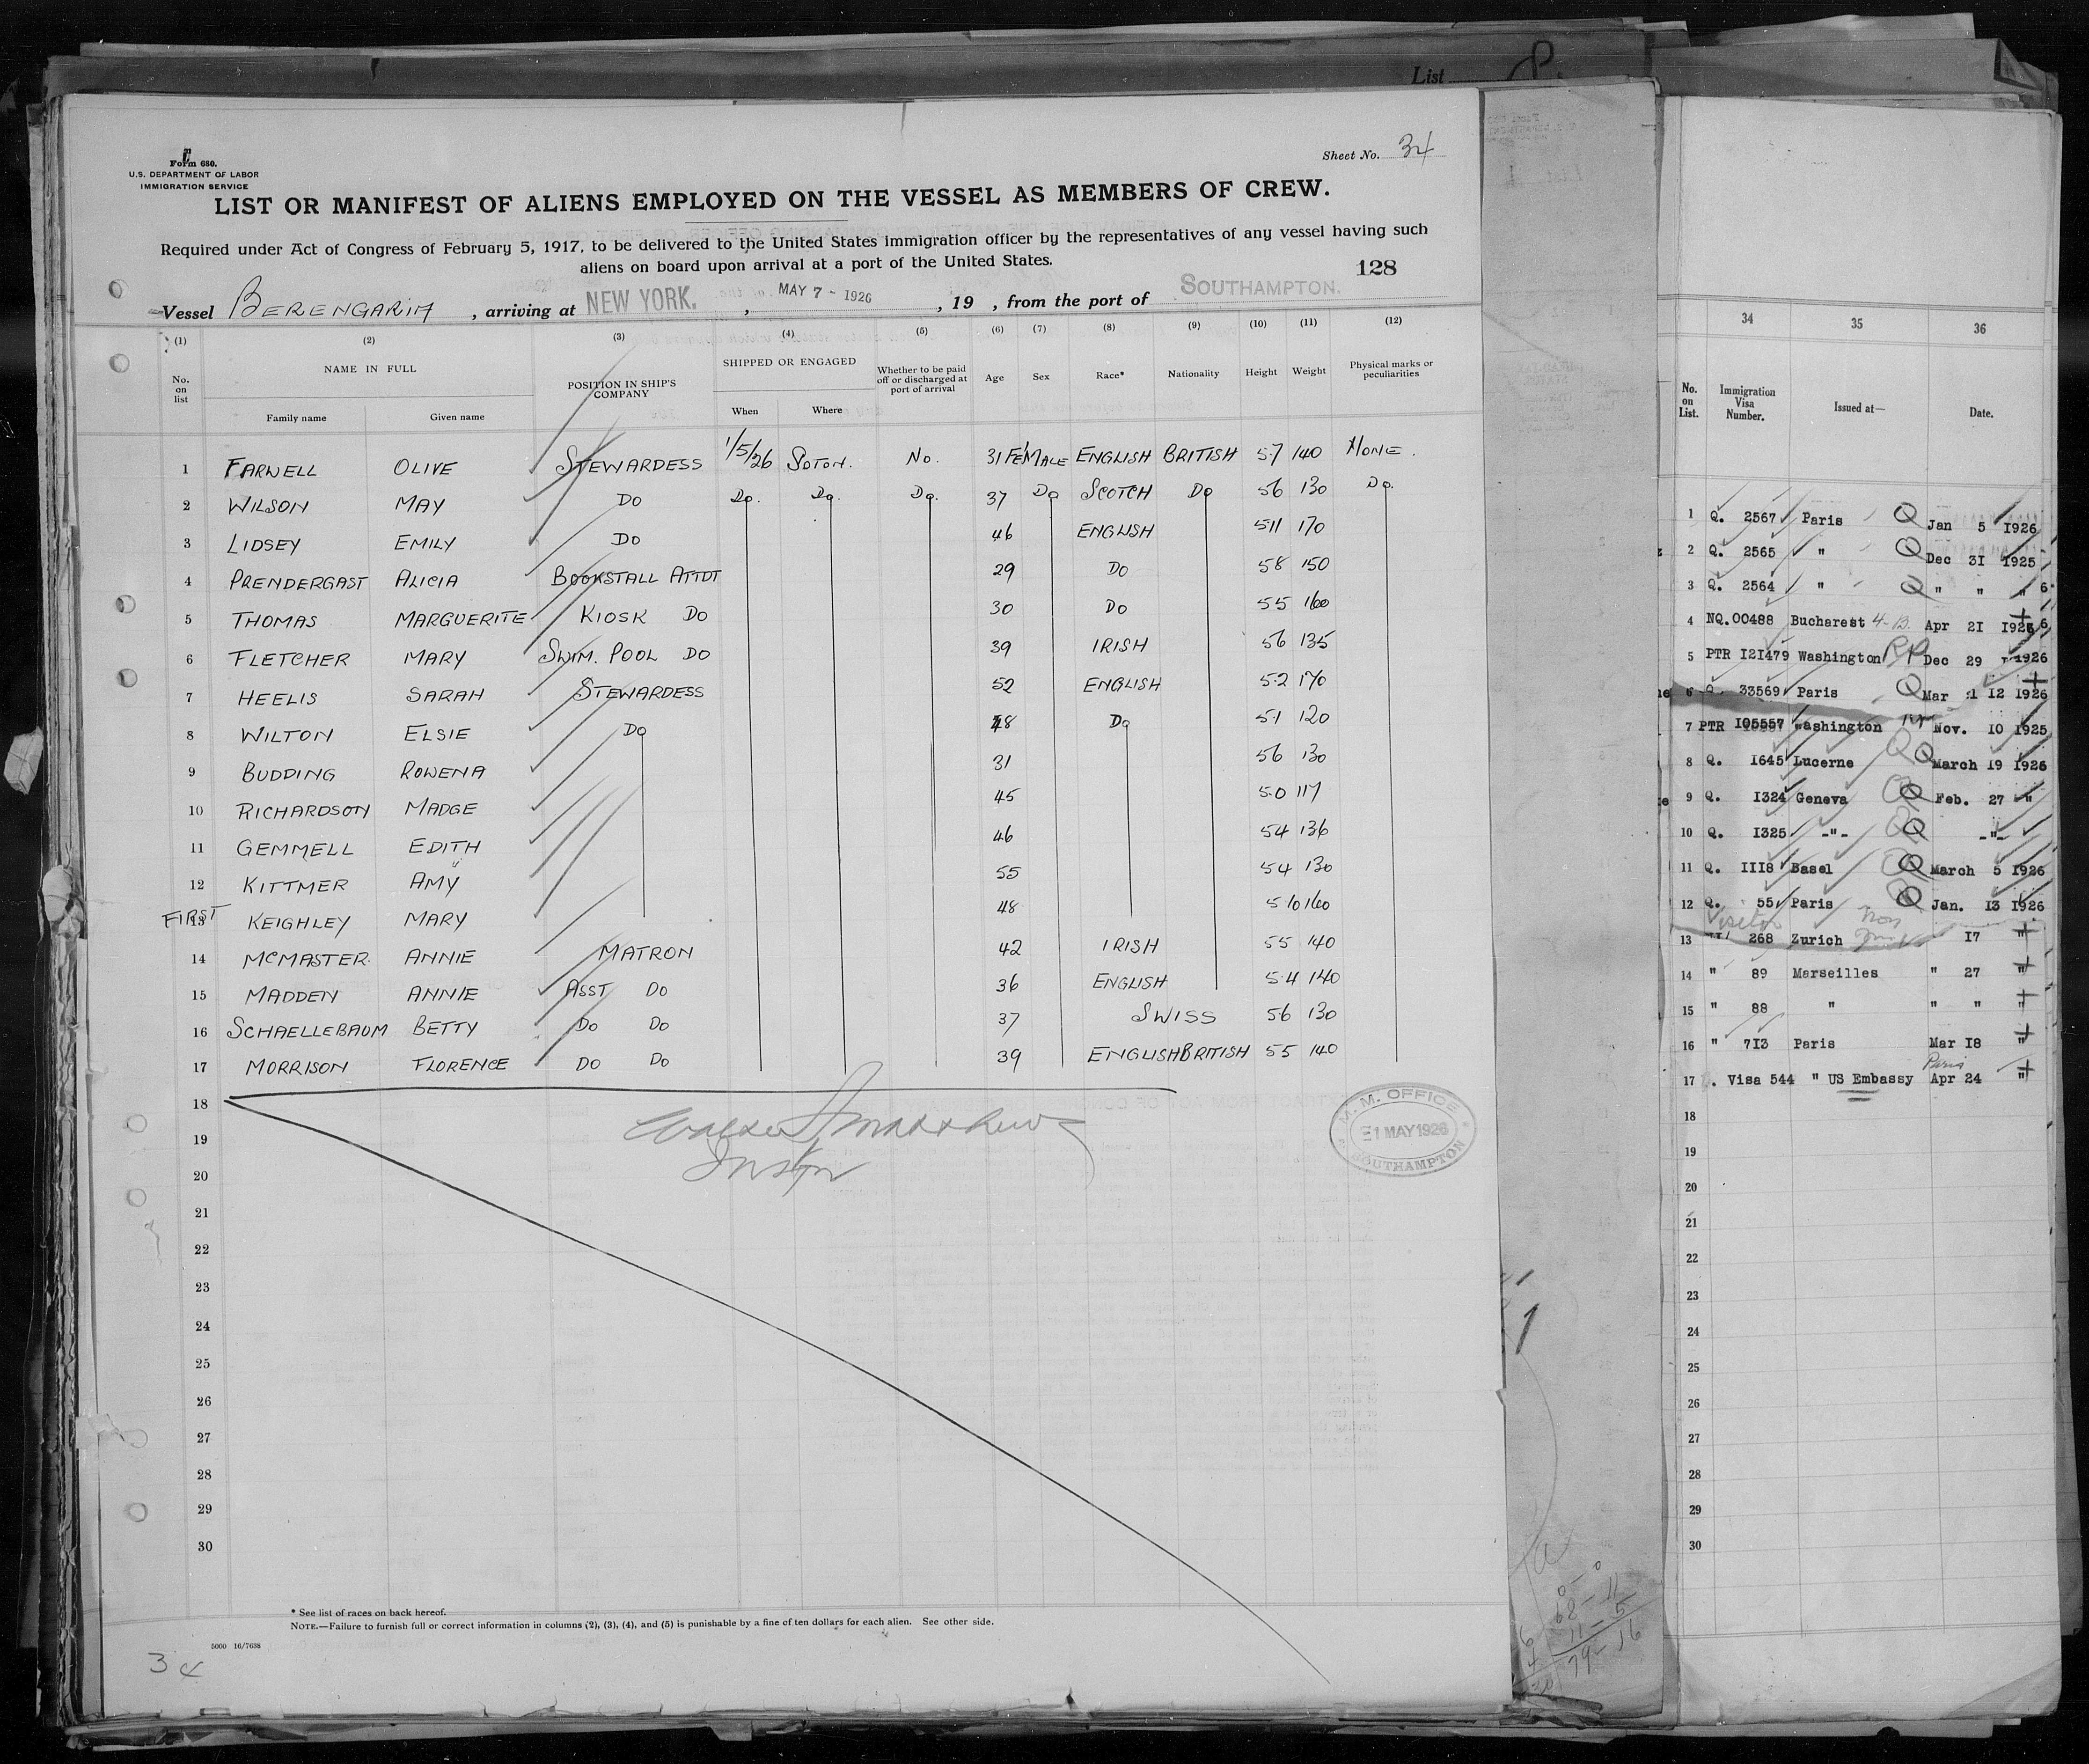 List
Form 680.
U.S. DEPARTMENT OF LABOR
IMMIGRATION SERVICE
Sheet No. 34
LIST OR MANIFEST OF ALIENS EMPLOYED ON THE VESSEL AS MEMBERS OF CREW.
Required under Act of Congress of February 5, 1917, to be delivered to the United States immigration officer by the representatives of any vessel having such
aliens on board upon arrival at a port of the United States.
128
Vessel BERENGARIA, arriving at NEW YORK. , MAY 7 - 1926 , 19 , from the port of SOUTHAMPTON.
(1) (2) (3) (4) (5) (6) (7) (8) (9) (10) (11) (12)
No. on list NAME IN FULL POSITION IN SHIP'S COMPANY SHIPPED OR ENGAGED Whether to be paid off or discharged at port of arrival Age Sex Race* Nationality Height Weight Physical marks or peculiarities
Family name Given name When Where
1 FARWELL OLIVE STEWARDESS 1/5/26 SOTON. NO. 31 FEMALE ENGLISH BRITISH 5-7 140 NONE.
2 WILSON MAY DO DO. DO. DO. 37 DO SCOTCH DO 56 130 DO.
3 LIDSEY EMILY DO 46 ENGLISH 5-11 170
4 PRENDERGAST ALICIA BOOKSTALL ATTDT 29 DO 58 150
5 THOMAS MARGUERITE KIOSK DO 30 DO 55 160
6 FLETCHER MARY SWIM. POOL DO 39 IRISH 56 135
7 HEELIS SARAH STEWARDESS 52 ENGLISH 5-2 170
8 WILTON ELSIE DO 48 DO 5-1 120
9 BUDDING ROWENA 31 56 130
10 RICHARDSON MADGE 45 5-0 117
11 GEMMELL EDITH 46 54 136
12 KITTMER AMY 55 54 130
FIRST 13 KEIGHLEY MARY 48 5-10 160
14 MCMASTER ANNIE MATRON 42 IRISH 55 140
15 MADDEN ANNIE ASST DO 36 ENGLISH 5-4 140
16 SCHAELLEBAUM BETTY DO DO 37 SWISS 56 130
17 MORRISON FLORENCE DO DO 39 ENGLISH BRITISH 55 140
18
19
20
21
22
23
24
25
26
27
28
29
30
M. M. OFFICE
1 MAY 1926
SOUTHAMPTON
* See list of races on back hereof.
NOTE.—Failure to furnish full or correct information in columns (2), (3), (4), and (5) is punishable by a fine of ten dollars for each alien. See other side.
5000 16/7638
34
34 35 36
No. on List. Immigration Visa Number. Issued at— Date.
1 Q. 2567 Paris Q Jan 5 1926
2 Q. 2565 " Q Dec 31 1925
3 Q. 2564 " Q " " "
4 NQ.00488 Bucharest Apr 21 1926
5 PTR 121479 Washington Dec 29 1926
6 Q. 33569 Paris Q Mar 12 1926
7 PTR 105557 Washington Nov. 10 1925
8 Q. 1645 Lucerne Q March 19 1926
9 Q. 1324 Geneva Q Feb. 27 "
10 Q. 1325 -"- Q -"-
11 Q. 1118 Basel Q March 5 1926
12 Q. 55 Paris Q Jan. 13 1926
13 268 Zurich 17 "
14 " 89 Marseilles " 27 "
15 " 88 " " " "
16 " 713 Paris Mar 18 "
Paris
17 . Visa 544 " US Embassy Apr 24 "
18
19
20
21
22
23
24
25
26
27
28
29
30